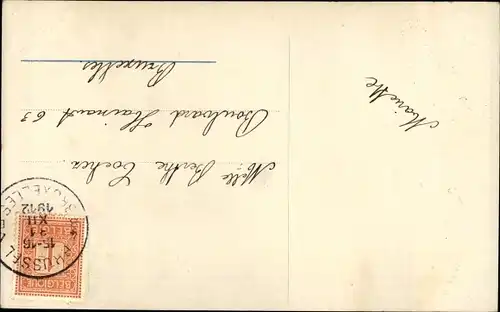 Mariette
Mlle Berthe Cochez
Boulevard Hainaut 63
Bruxelles
BRUXELLES
BRUSSEL
15-16
31
XII
1912
BELGIQUE
1
BELGIE